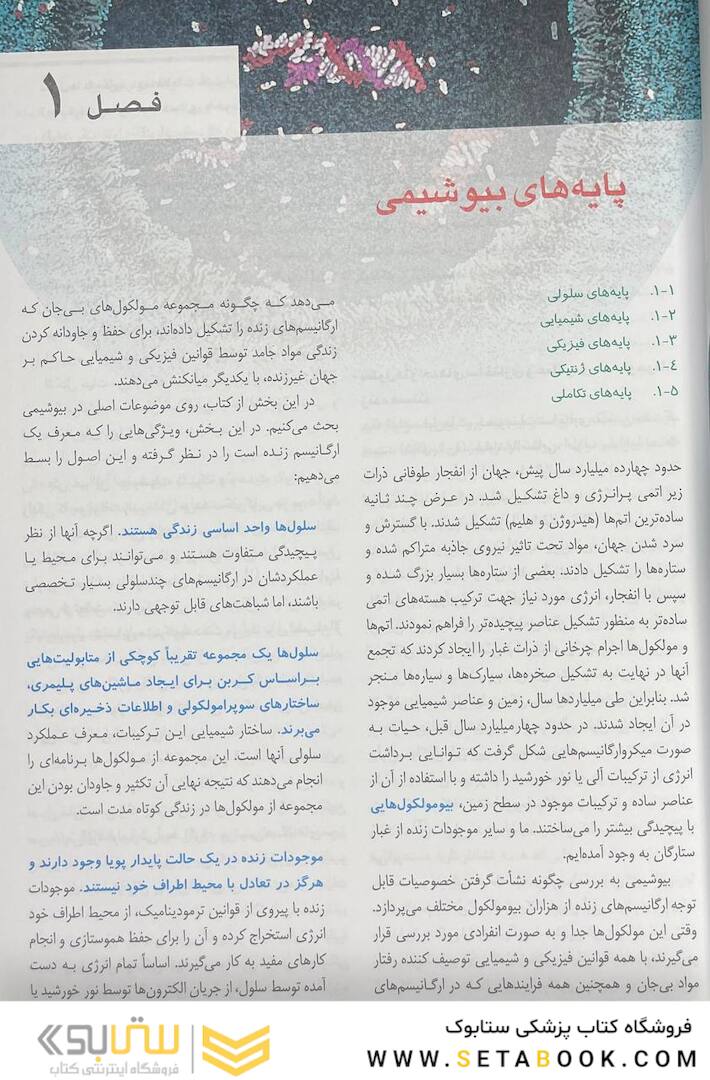 فصل ۱
پایه‌های بیوشیمی
۱-۱. پایه‌های سلولی
۱-۲. پایه‌های شیمیایی
۱-۳. پایه‌های فیزیکی
۱-٤. پایه‌های ژنتیکی
۱-۵. پایه‌های تکاملی
حدود چهارده میلیارد سال پیش، جهان از انفجار طوفانی ذرات
زیر اتمی پرانرژی و داغ تشکیل شد. در عرض چند ثانیه
ساده‌ترین اتم‌ها (هیدروژن و هلیم) تشکیل شدند. با گسترش و
سرد شدن جهان، مواد تحت تاثیر نیروی جاذبه متراکم شده و
ستاره‌ها را تشکیل دادند. بعضی از ستاره‌ها بسیار بزرگ شده و
سپس با انفجار، انرژی مورد نیاز جهت ترکیب هسته‌های اتمی
ساده‌تر به منظور تشکیل عناصر پیچیده‌تر را فراهم نمودند. اتم‌ها
و مولکول‌ها اجرام چرخانی از ذرات غبار را ایجاد کردند که تجمع
آنها در نهایت به تشکیل صخره‌ها، سیارک‌ها و سیاره‌ها منجر
شد. بنابراین طی میلیاردها سال، زمین و عناصر شیمیایی موجود
در آن ایجاد شدند. در حدود چهارمیلیارد سال قبل، حیات به
صورت میکروارگانیسم‌هایی شکل گرفت که توانایی برداشت
انرژی از ترکیبات آلی یا نور خورشید را داشته و با استفاده از آن از
عناصر ساده و ترکیبات موجود در سطح زمین، بیومولکول‌هایی
با پیچیدگی بیشتر را می‌ساختند. ما و سایر موجودات زنده از غبار
ستارگان به وجود آمده‌ایم.
بیوشیمی به بررسی چگونه نشأت گرفتن خصوصیات قابل
توجه ارگانیسم‌های زنده از هزاران بیومولکول مختلف می‌پردازد.
وقتی این مولکول‌ها جدا و به صورت انفرادی مورد بررسی قرار
می‌گیرند، با همه قوانین فیزیکی و شیمیایی توصیف کننده رفتار
مواد بی‌جان و همچنین همه فرایندهایی که در ارگانیسم‌های
می‌دهد که چگونه مجموعه مولکول‌های بی‌جان که
ارگانیسم‌های زنده را تشکیل داده‌اند، برای حفظ و جاودانه کردن
زندگی مواد جامد توسط قوانین فیزیکی و شیمیایی حاکم بر
جهان غیرزنده، با یکدیگر میانکنش می‌دهند.
در این بخش از کتاب، روی موضوعات اصلی در بیوشیمی
بحث می‌کنیم. در این بخش، ویژگی‌هایی را که معرف یک
ارگانیسم زنده است را در نظر گرفته و این اصول را بسط
می‌دهیم:
سلول‌ها واحد اساسی زندگی هستند. اگرچه آنها از نظر
پیچیدگی متفاوت هستند و می‌توانند برای محیط یا
عملکردشان در ارگانیسم‌های چندسلولی بسیار تخصصی
باشند، اما شباهت‌های قابل توجهی دارند.
سلول‌ها یک مجموعه تقریباً کوچکی از متابولیت‌هایی
براساس کربن برای ایجاد ماشین‌های پلیمری،
ساختارهای سوپرامولکولی و اطلاعات ذخیره‌ای بکار
می‌برند. ساختار شیمیایی این ترکیبات، معرف عملکرد
سلولی آنها است. این مجموعه از مولکول‌ها برنامه‌ای را
انجام می‌دهند که نتیجه نهایی آن تکثیر و جاودان بودن این
مجموعه از مولکول‌ها در زندگی کوتاه مدت است.
موجودات زنده در یک حالت پایدار پویا وجود دارند و
هرگز در تعادل با محیط اطراف خود نیستند. موجودات
زنده با پیروی از قوانین ترمودینامیک، از محیط اطراف خود
انرژی استخراج کرده و آن را برای حفظ هموستازی و انجام
کارهای مفید به کار می‌گیرند. اساساً تمام انرژی به دست
آمده توسط سلول، از جریان الکترون‌ها توسط نور خورشید یا
فروشگاه کتاب پزشکی ستابوک
WWW.SETABOOK.COM
ستابوک
فروشگاه اینترنتی کتاب